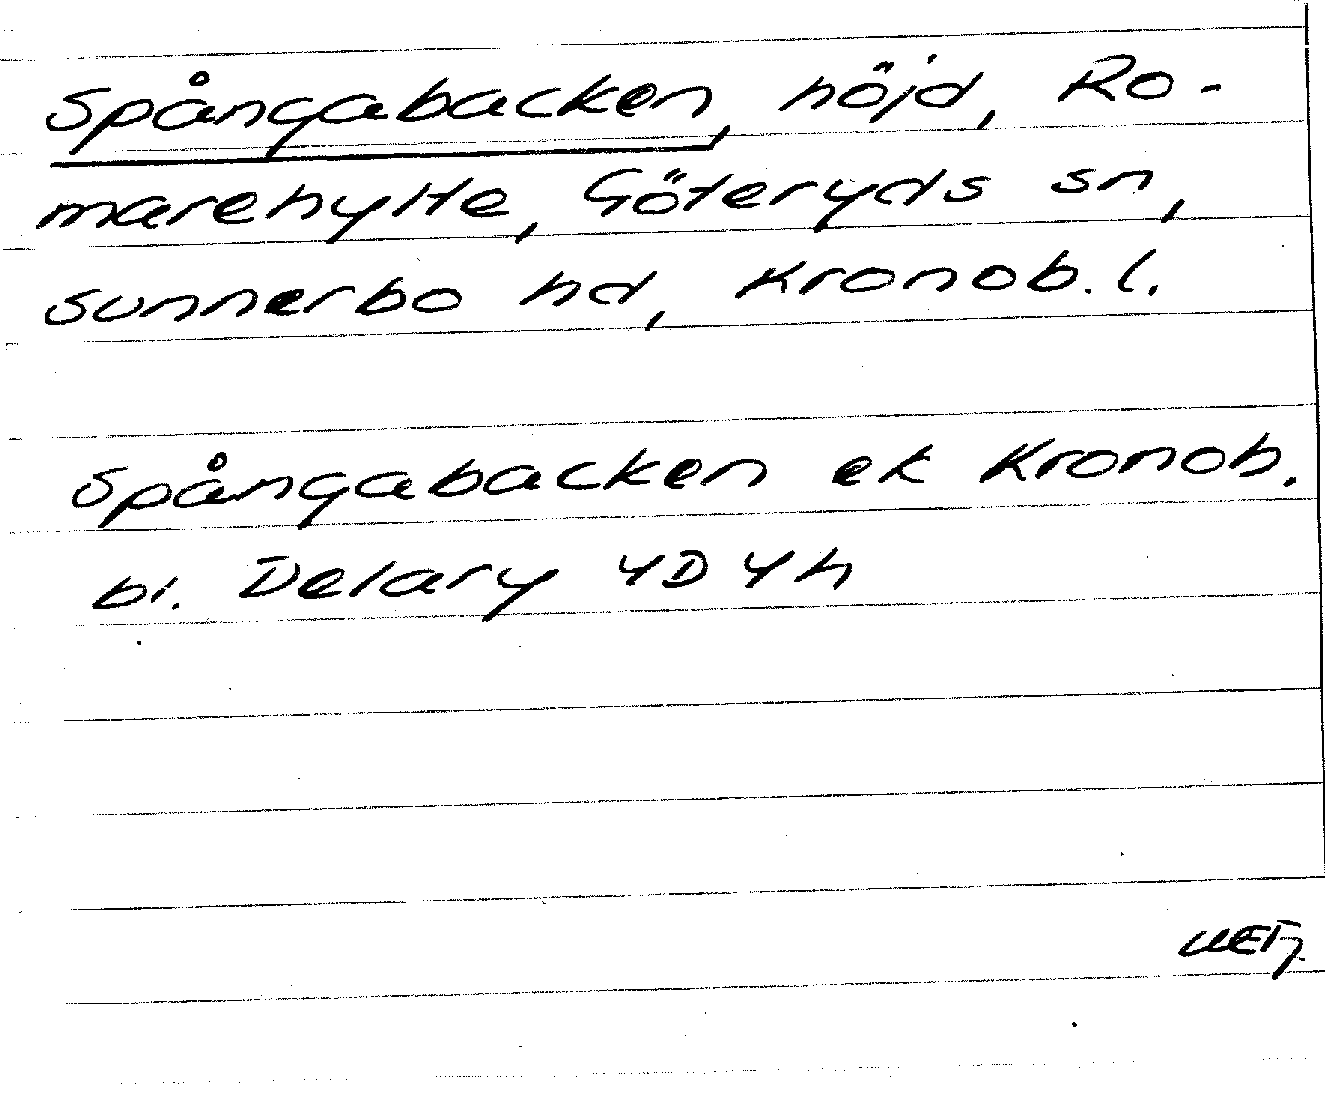 Spångabacken, höjd, Ro-
marehylte, Göteryds sn,
Sunnerbo hd, Kronob. l.
Spångabacken ek Kronob.
bl. Delary 4D 4h